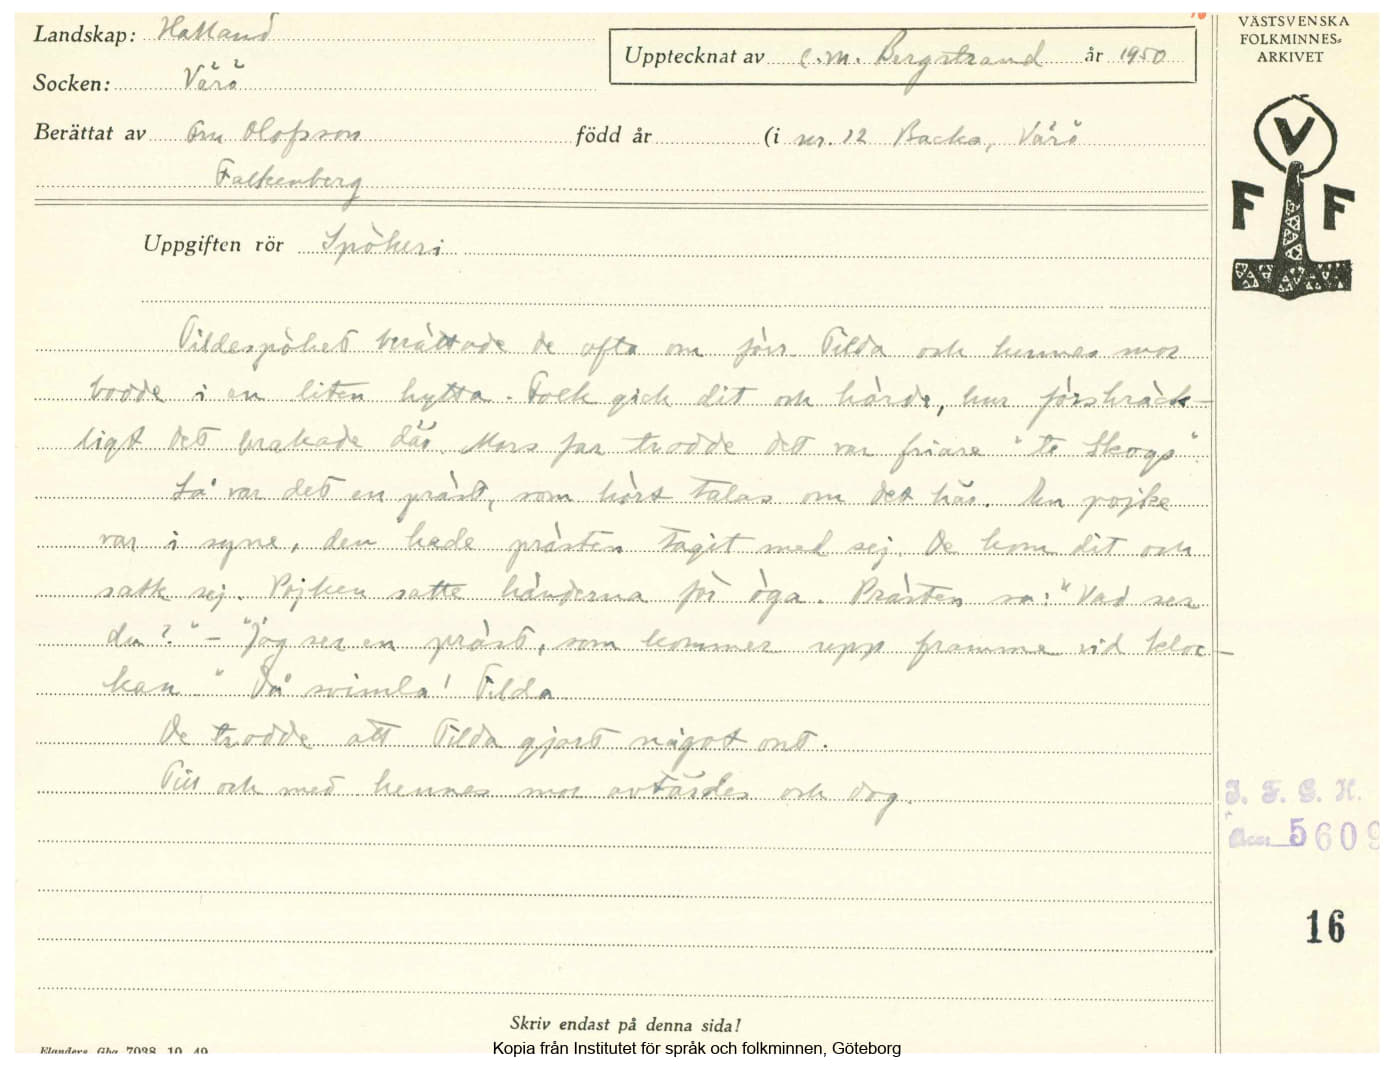 Landskap: Halland
Socken: Värö
Upptecknat av C.M. Bergstrand år 1950
VÄSTSVENSKA
FOLKMINNES-
ARKIVET
V
F F
Berättat av Fru Olofsson född år (i nr. 12 Backa, Värö
Falkenberg
Uppgiften rör Spökeri
Tildespöket berättade de ofta om förr. Tilda och hennes mor
bodde i en liten hytta. Folk gick dit och hörde, hur förskräck-
ligt det brakade där. Mors far trodde det var friare "te Skogs".
Så var det en präst, som hört talas om det här. En pojke
var i syne, den hade prästen tagit med sej. De kom dit och
satte sej. Pojken satte händerna för öga. Prästen sa: "Vad ser
du?" – "Jag ser en präst, som kommer upp framme vid kloc-
kan." Då svimla' Tilda.
De trodde att Tilda gjort något ont.
Till och med hennes mor avtärdes och dog.
I. F. G. H.
Acc: 5609
16
Skriv endast på denna sida!
Elanders, Gbg 7038 10 49
Kopia från Institutet för språk och folkminnen, Göteborg